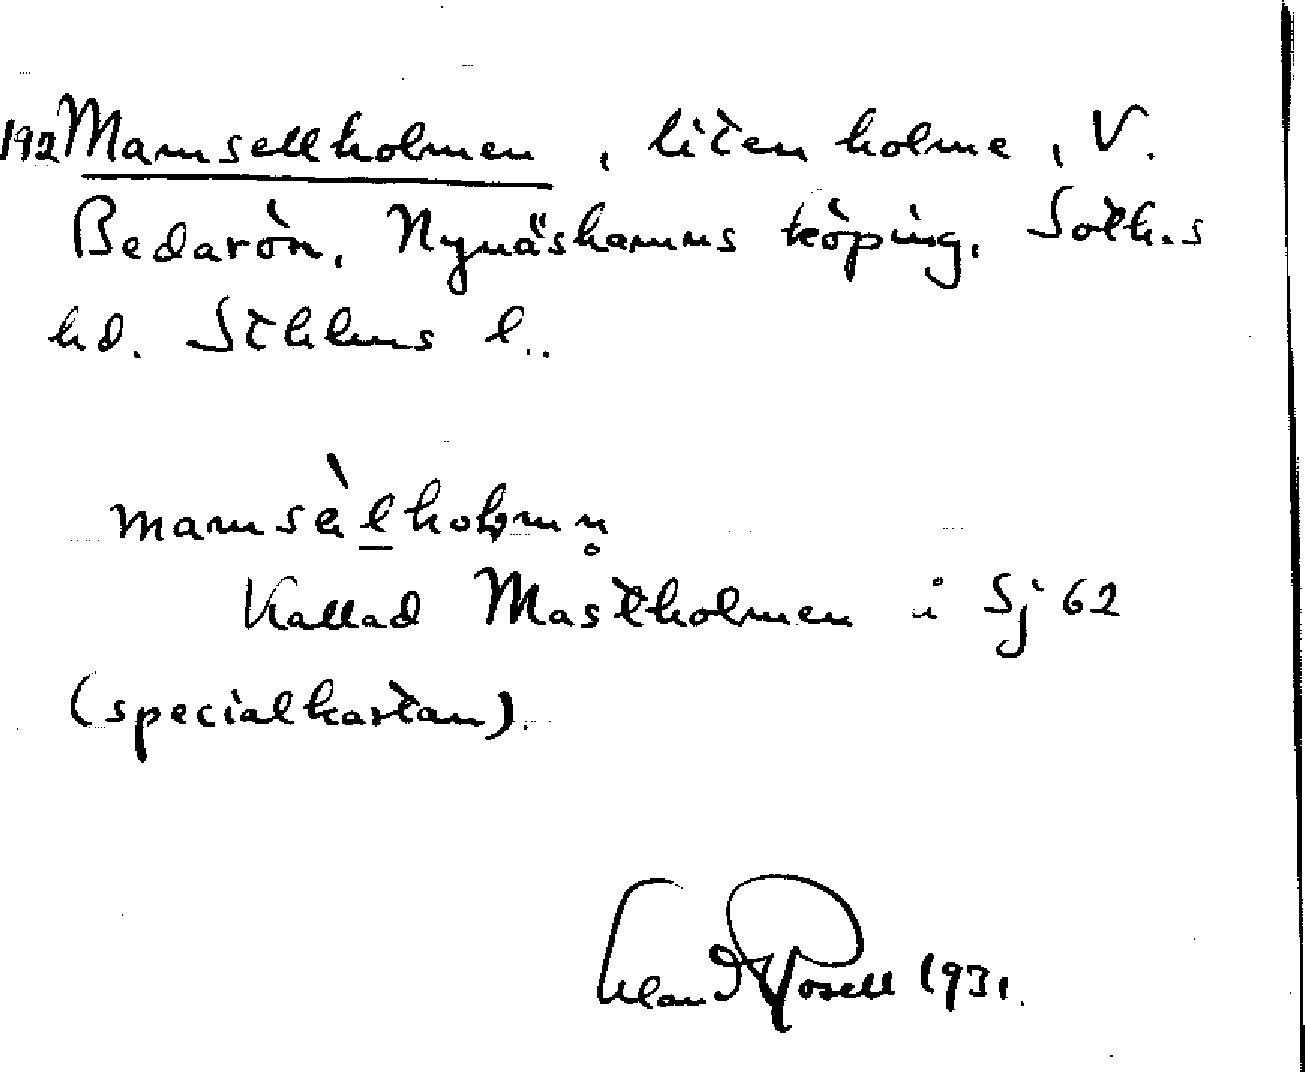 192 Mamsellholmen, liten holme, V.
Bedarön, Nynäshamns köping, Soth.s
hd. Sthlms l..
mamsèlholmn̥
Kallad Mastholmen i Sj 62
(specialkartan).
Rosell 1931.